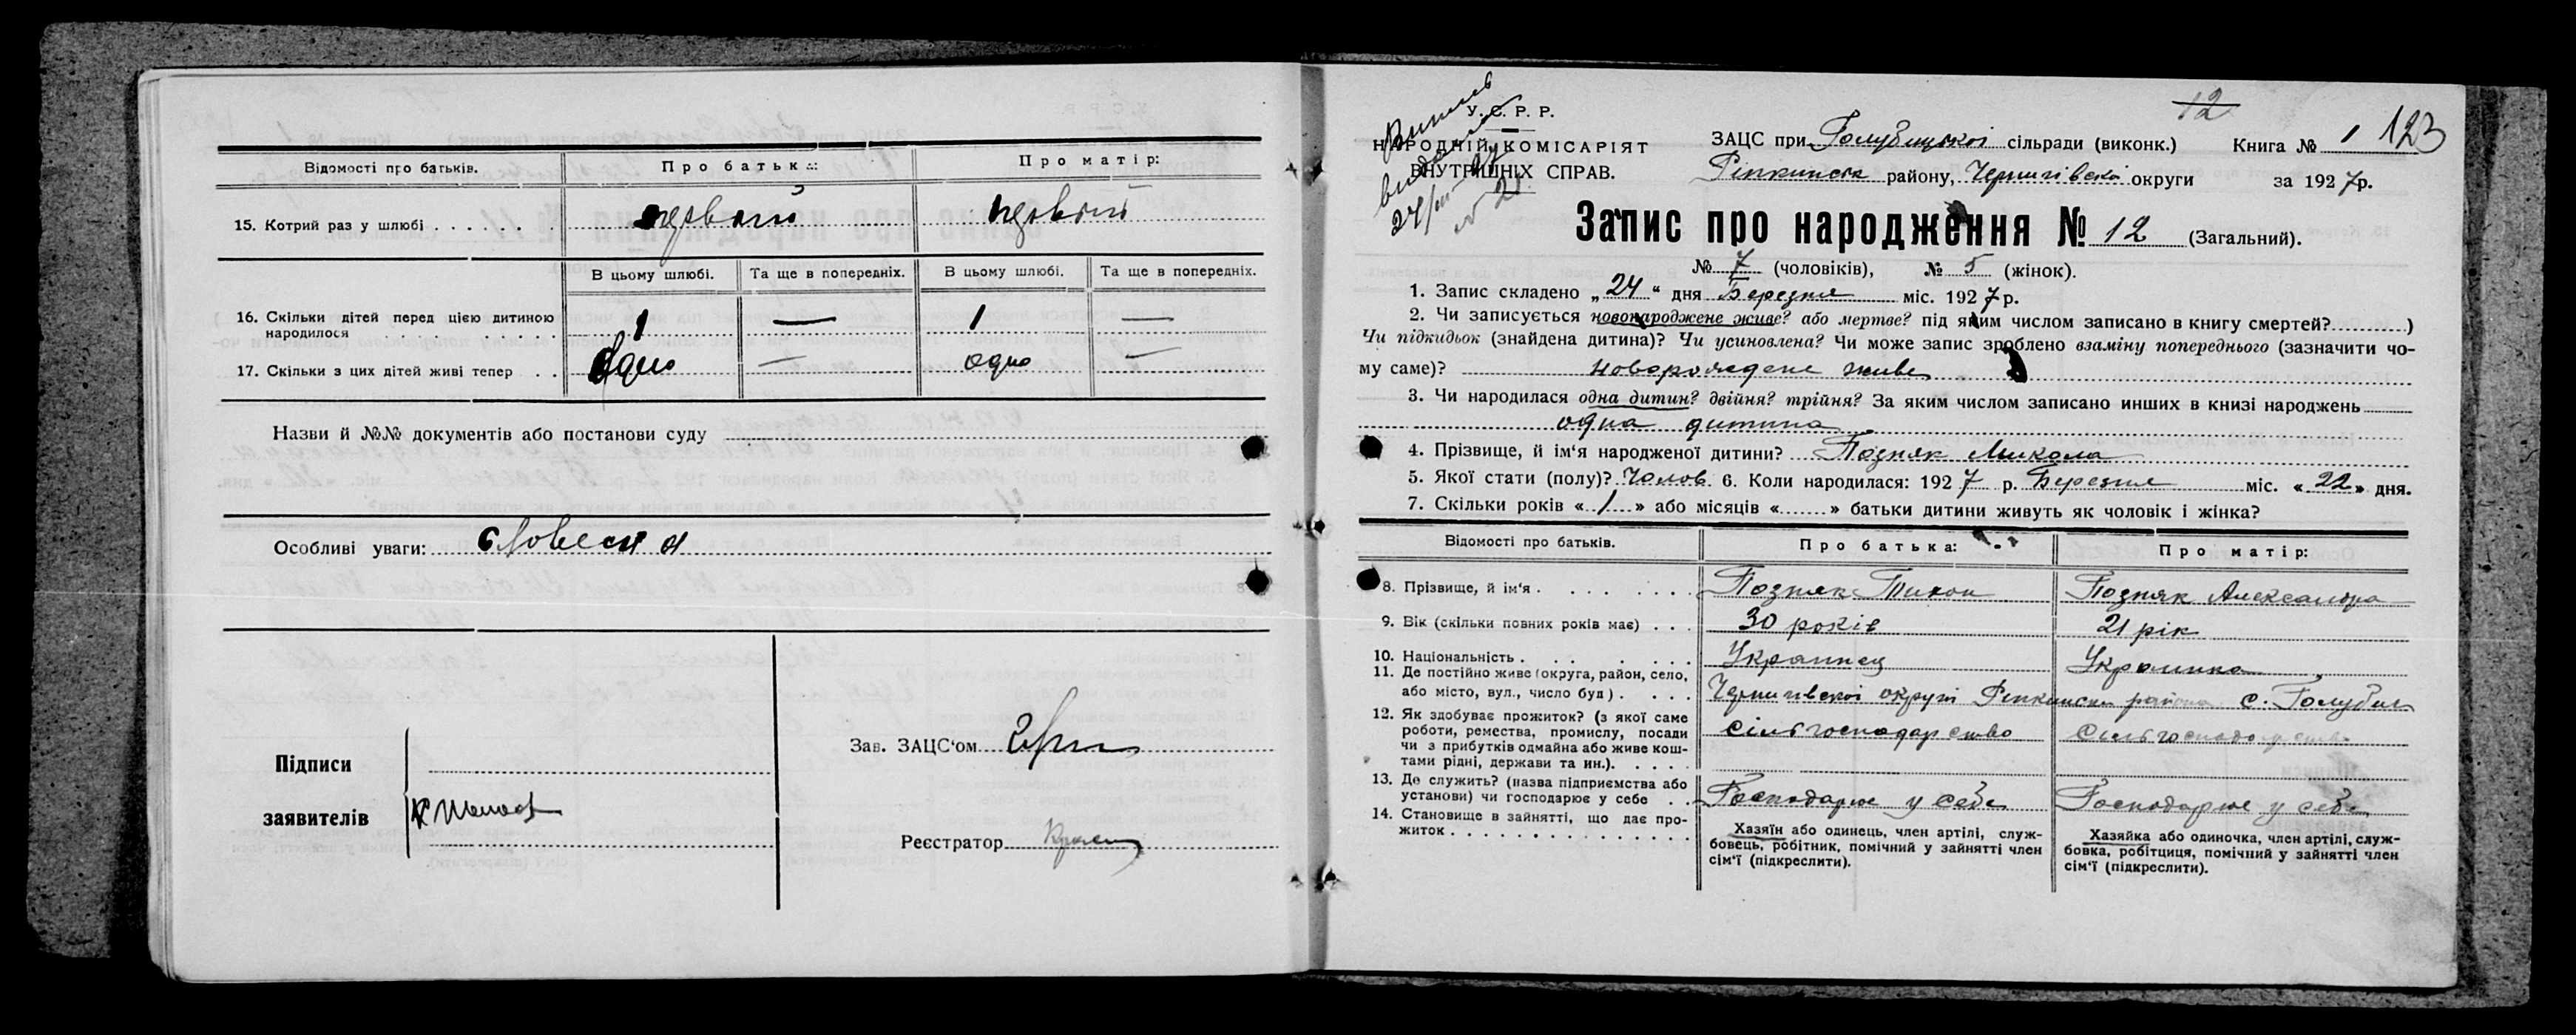 Відомості про батьків. Про батька: Про матір:
15. Котрий раз у шлюбі первый первый
В цьому шлюбі. Та ще в попередніх. В цьому шлюбі. Та ще в попередніх.
16. Скільки дітей перед цією дитиною
народилося 1 — 1 —
17. Скільки з цих дітей живі тепер Одно — одно —
Назви й №№ документів або постанови суду
Особливі уваги:
Підписи
заявителів
Зав. ЗАЦС'ом
Реєстратор
12
123
У.С.Р.Р.
НАРОДНІЙ КОМІСАРІЯТ
ВНУТРІШНІХ СПРАВ.
Выпись
№ 21
ЗАЦС при Голубицької сільради (виконк.) Книга № 1
Ріпкинськ району, Чернигівскої округи за 1927р.
Запис про народження № 12 (Загальний).
№ 7 (чоловіків), № 5 (жінок).
1. Запис складено „24“ дня Березня міс. 1927р.
2. Чи записується новонароджене живе? або мертве? під яким числом записано в книгу смертей? )
Чи підкидьок (знайдена дитина)? Чи усиновлена? Чи може запис зроблено взаміну попереднього (зазначити чо-
му саме)? новорожден живе
3. Чи народилася одна дитин? двійня? трійня? За яким числом записано инших в книзі народжень
одна дитина
4. Прізвище, й ім'я народженої дитини? Позняк Микола
5. Якої стати (полу)? Чолов. 6. Коли народилася: 1927 р. Березня міс. «22» дня.
7. Скільки років «1» або місяців « » батьки дитини живуть як чоловік і жінка?
Відомості про батьків. Про батька: Про матір:
8. Прізвище, й ім'я Позняк Тихон Позняк Александра
9. Вік (скільки повних років має) 30 років 21 рік
10. Національність Украинец Украинка
11. Де постійно живе (округа, район, село,
або місто, вул., число буд) Чернигівскої округі Ріпкинськ района с.
12. Як здобуває прожиток? (з якої саме
роботи, ремества, промислу, посади сільгосподарство сільгосподарство
чи з прибутків одмайна або живе кош-
тами рідні, держави та ин.).
13. Де служить? (назва підприємства або
установи) чи господарює у себе Господарює у себе Господарює у себе
14. Становище в зайнятті, що дає про-
житок
Хазяїн або одинець, член артілі, служ-
бовець, робітник, помічний у зайнятті член
сім'ї (підкреслити).
Хазяйка або одиночка, член артілі, служ-
бовка, робітциця, помічний у зайнятті член
сім'ї (підкреслити).